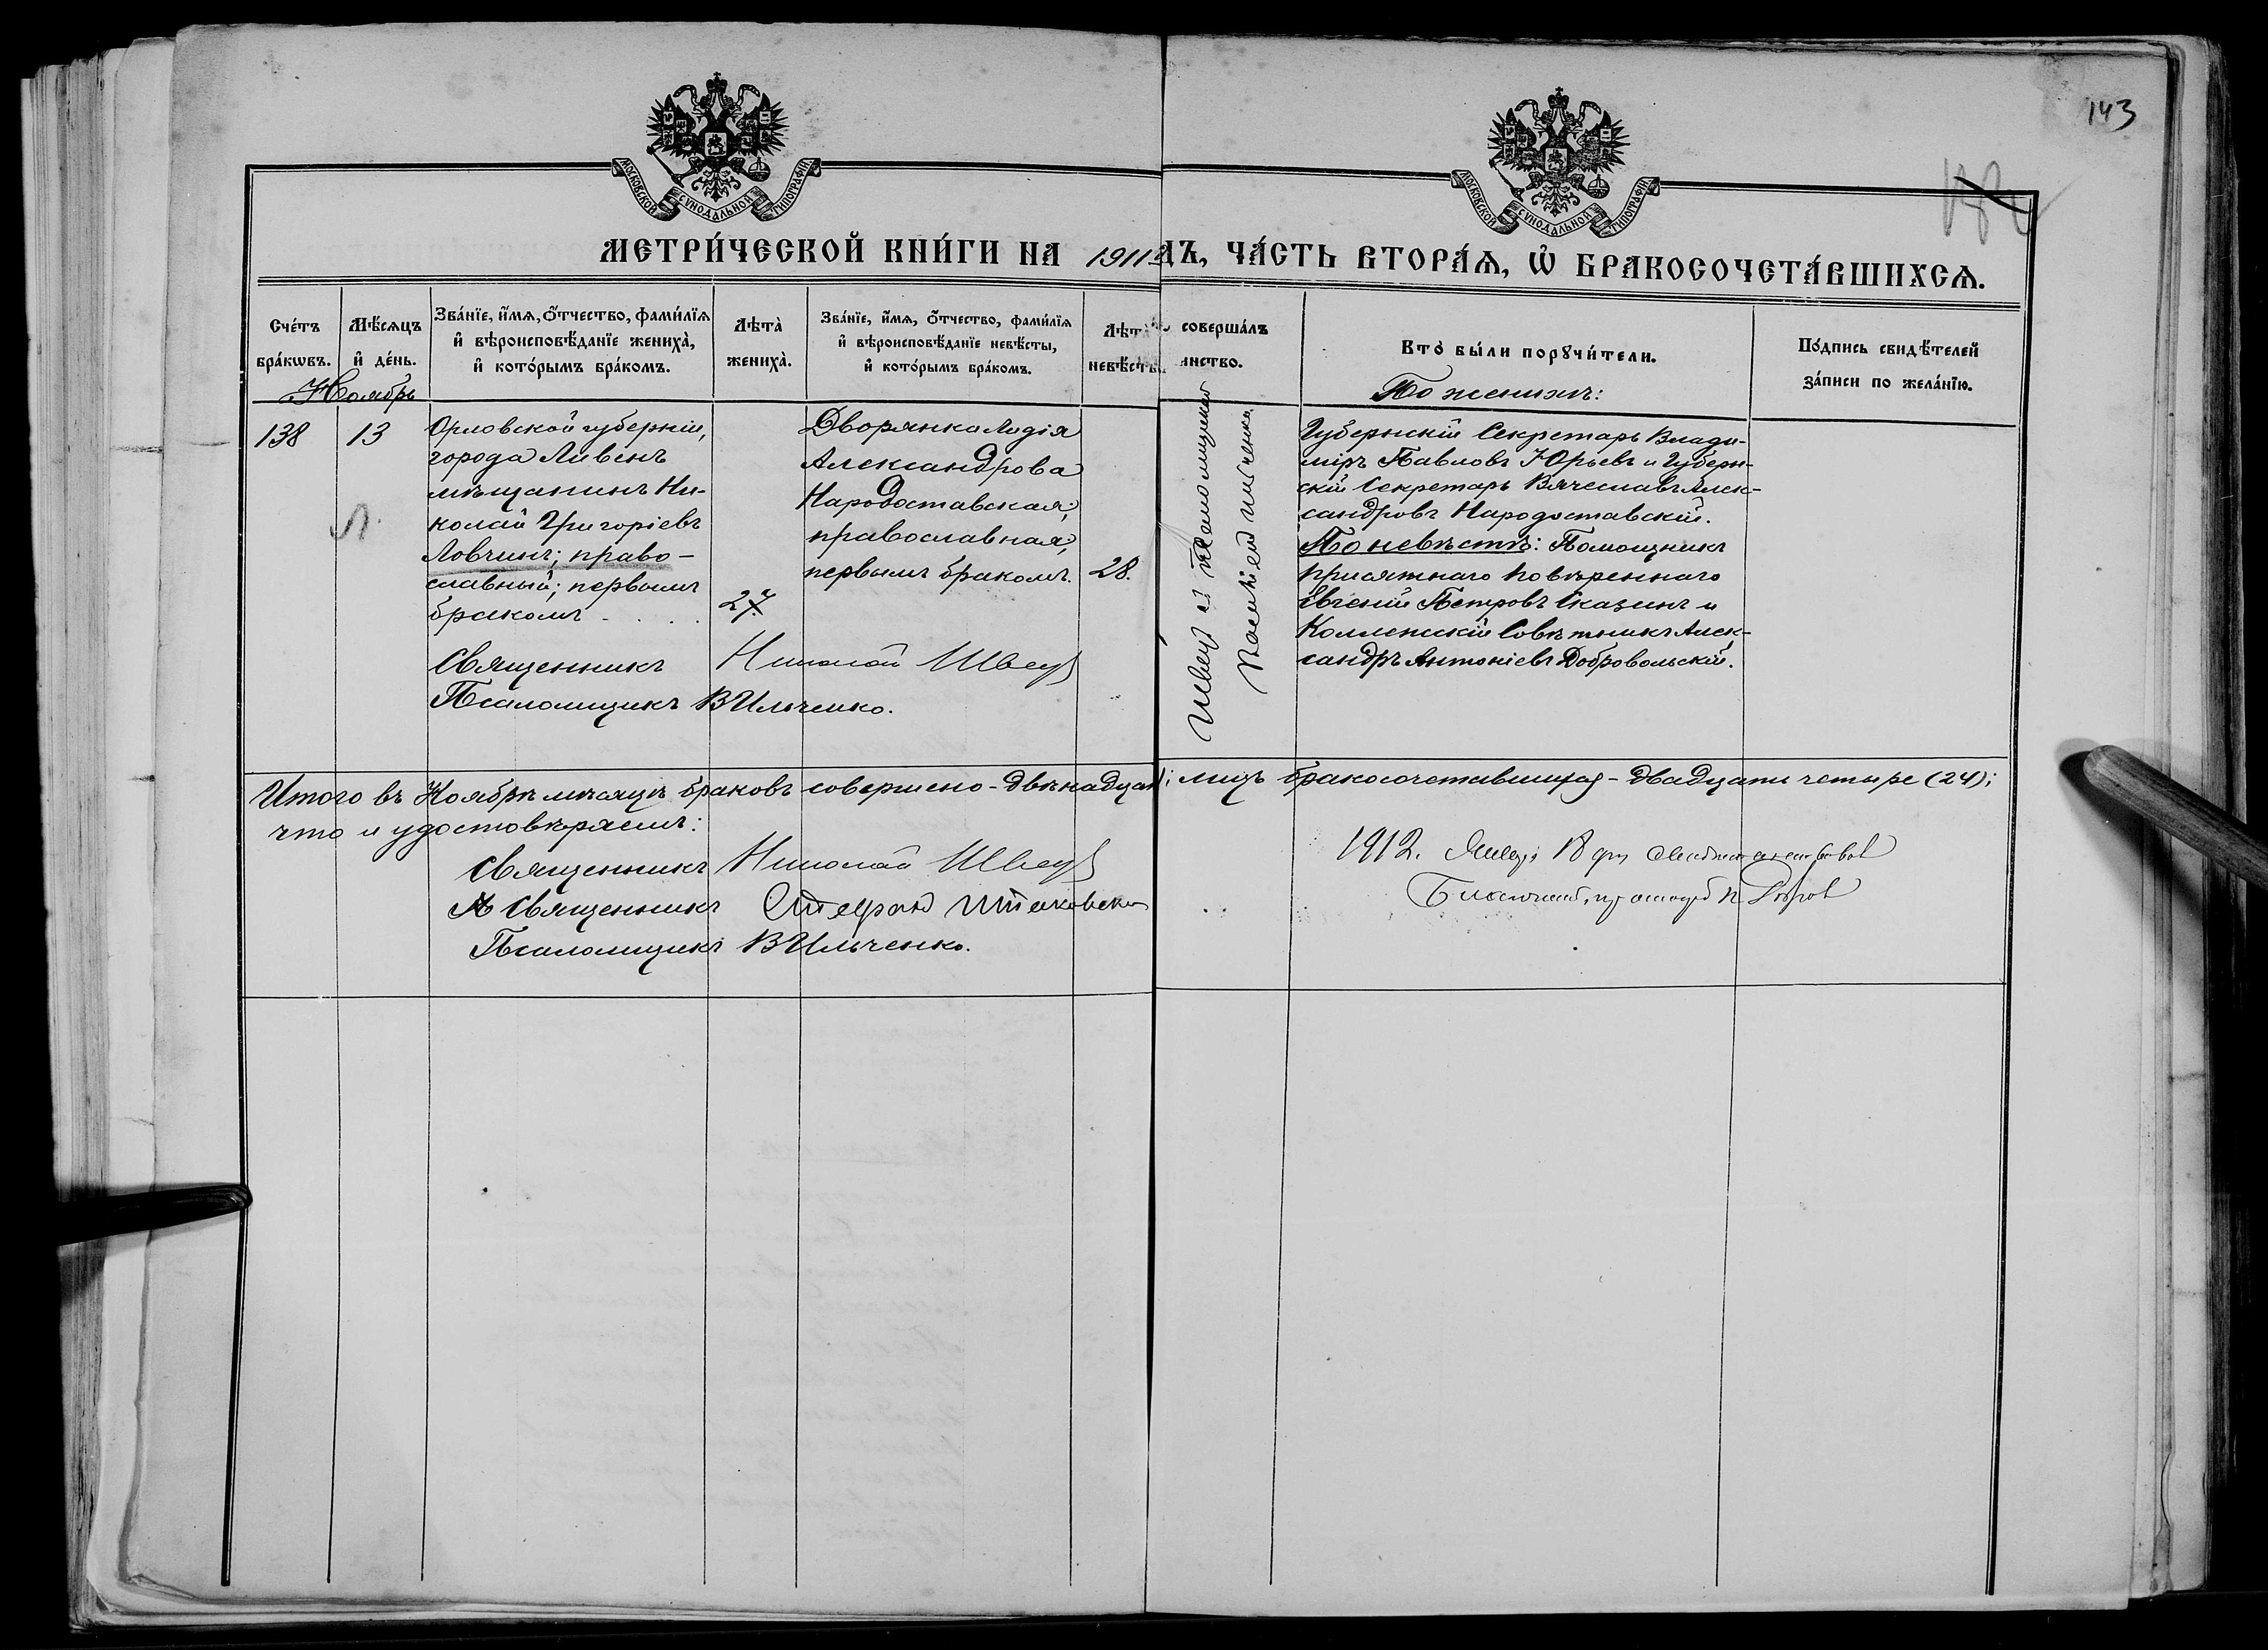 143
МОСКОВСКОЙ СѴНОДАЛЬНОЙ ТИПОГРАФІИ
МОСКОВСКОЙ СѴНОДАЛЬНОЙ ТИПОГРАФІИ
МЕТРИ́ЧЕСКОЙ КНИ́ГИ НА 1911 ДЪ, ЧА́СТЬ ВТОРА́Ѧ, Ѡ҆ БРАКОСОЧЕТА́ВШИХСѦ.
Сче́тъ бра́кѡвъ.
Мѣ́сѧцъ и҆ де́нь.
Зва́нїе, и҆́мѧ, ѻ҆́тчество, фами́лїѧ
и҆ вѣроисповѣ́данїе жениха̀,
и҆ кото́рымъ бра́комъ.
Лѣта̀ жениха̀.
Зва́нїе, и҆́мѧ, ѻ҆́тчество, фами́лїѧ
и҆ вѣроисповѣ́данїе невѣ́сты,
и҆ кото́рымъ бра́комъ.
Лѣта̀ невѣ́сты.
соверша́лъ
инство.
Кто̀ бы́ли порꙋчи́тели.
По́дпись свидѣ́телей
за́писи по жела́нїю.
Ноябрь
138
13
Орловской губерніи,
города Ливенъ
мѣщанинъ Ни-
колай Григоріевъ
Ловчинъ; право-
славный; первымъ
бракомъ . . . .
27.
Дворянка Лидія
Александрова
Народоставская,
православная,
первымъ бракомъ.
28.
Швецъ съ псаломщикомъ
Ильченко
По женихѣ:
Губернскій Секретарь Влади-
міръ Павловъ Юрьевъ и Губерн-
скій Секретарь Вячеславъ Алек-
сандровъ Народоставскій.
По невѣстѣ: Помощникъ
присяжнаго повѣреннаго
Евгеній Петровъ Сказинъ и
Коллежскій Совѣтникъ Алек-
сандръ Антоніевъ Добровольскій.
Священникъ Николай Швецъ
Псаломщикъ В Ильченко.
Итого въ Ноябрѣ мѣсяцѣ браковъ совершено - двѣнадцать; лицъ бракосочетавшихся - двадцать четыре (24);
что и удостовѣряемъ:
Священникъ Николай Швецъ
Священникъ Стефанъ
Псаломщикъ В Ильченко.
1912. Января 18 дня